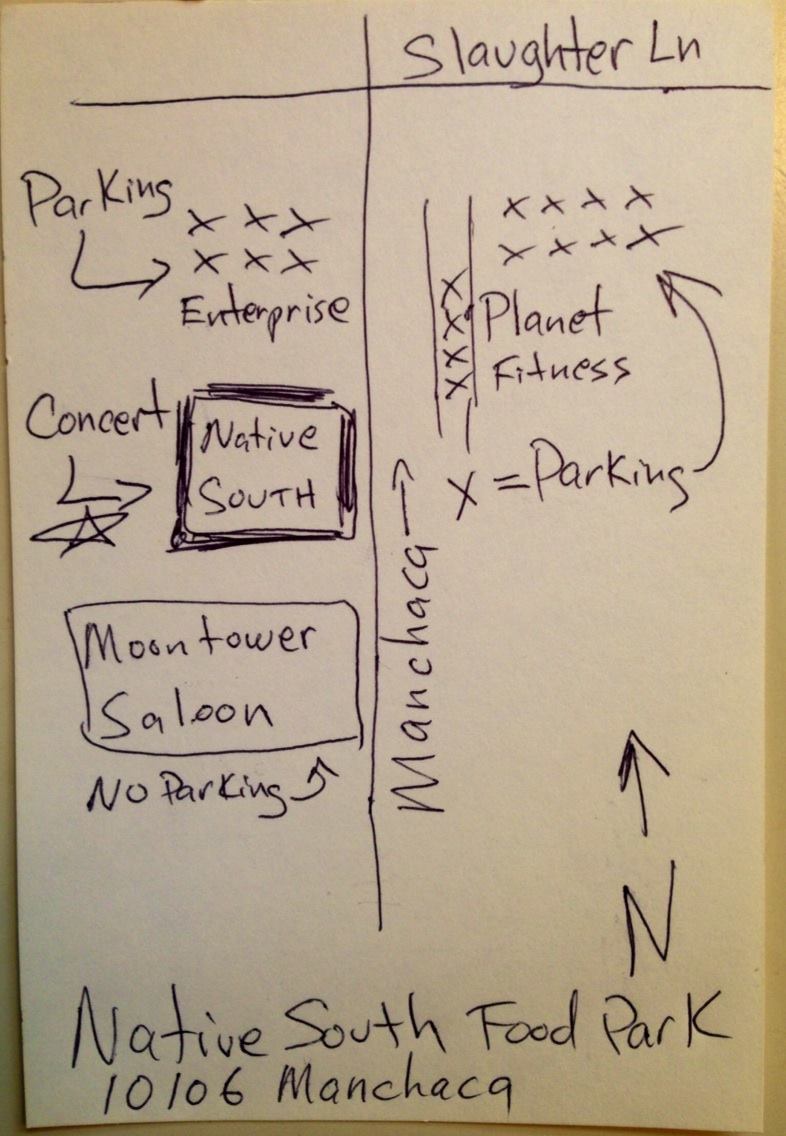 Slaughter Ln
Parking
x x x
x x x
Enterprise
x x x x
x x x x
x
x
x
x
Planet
Fitness
x = Parking
Concert
Native
SOUTH
Manchaca
Moontower
Saloon
No Parking
N
Native South Food Park
10106 Manchaca